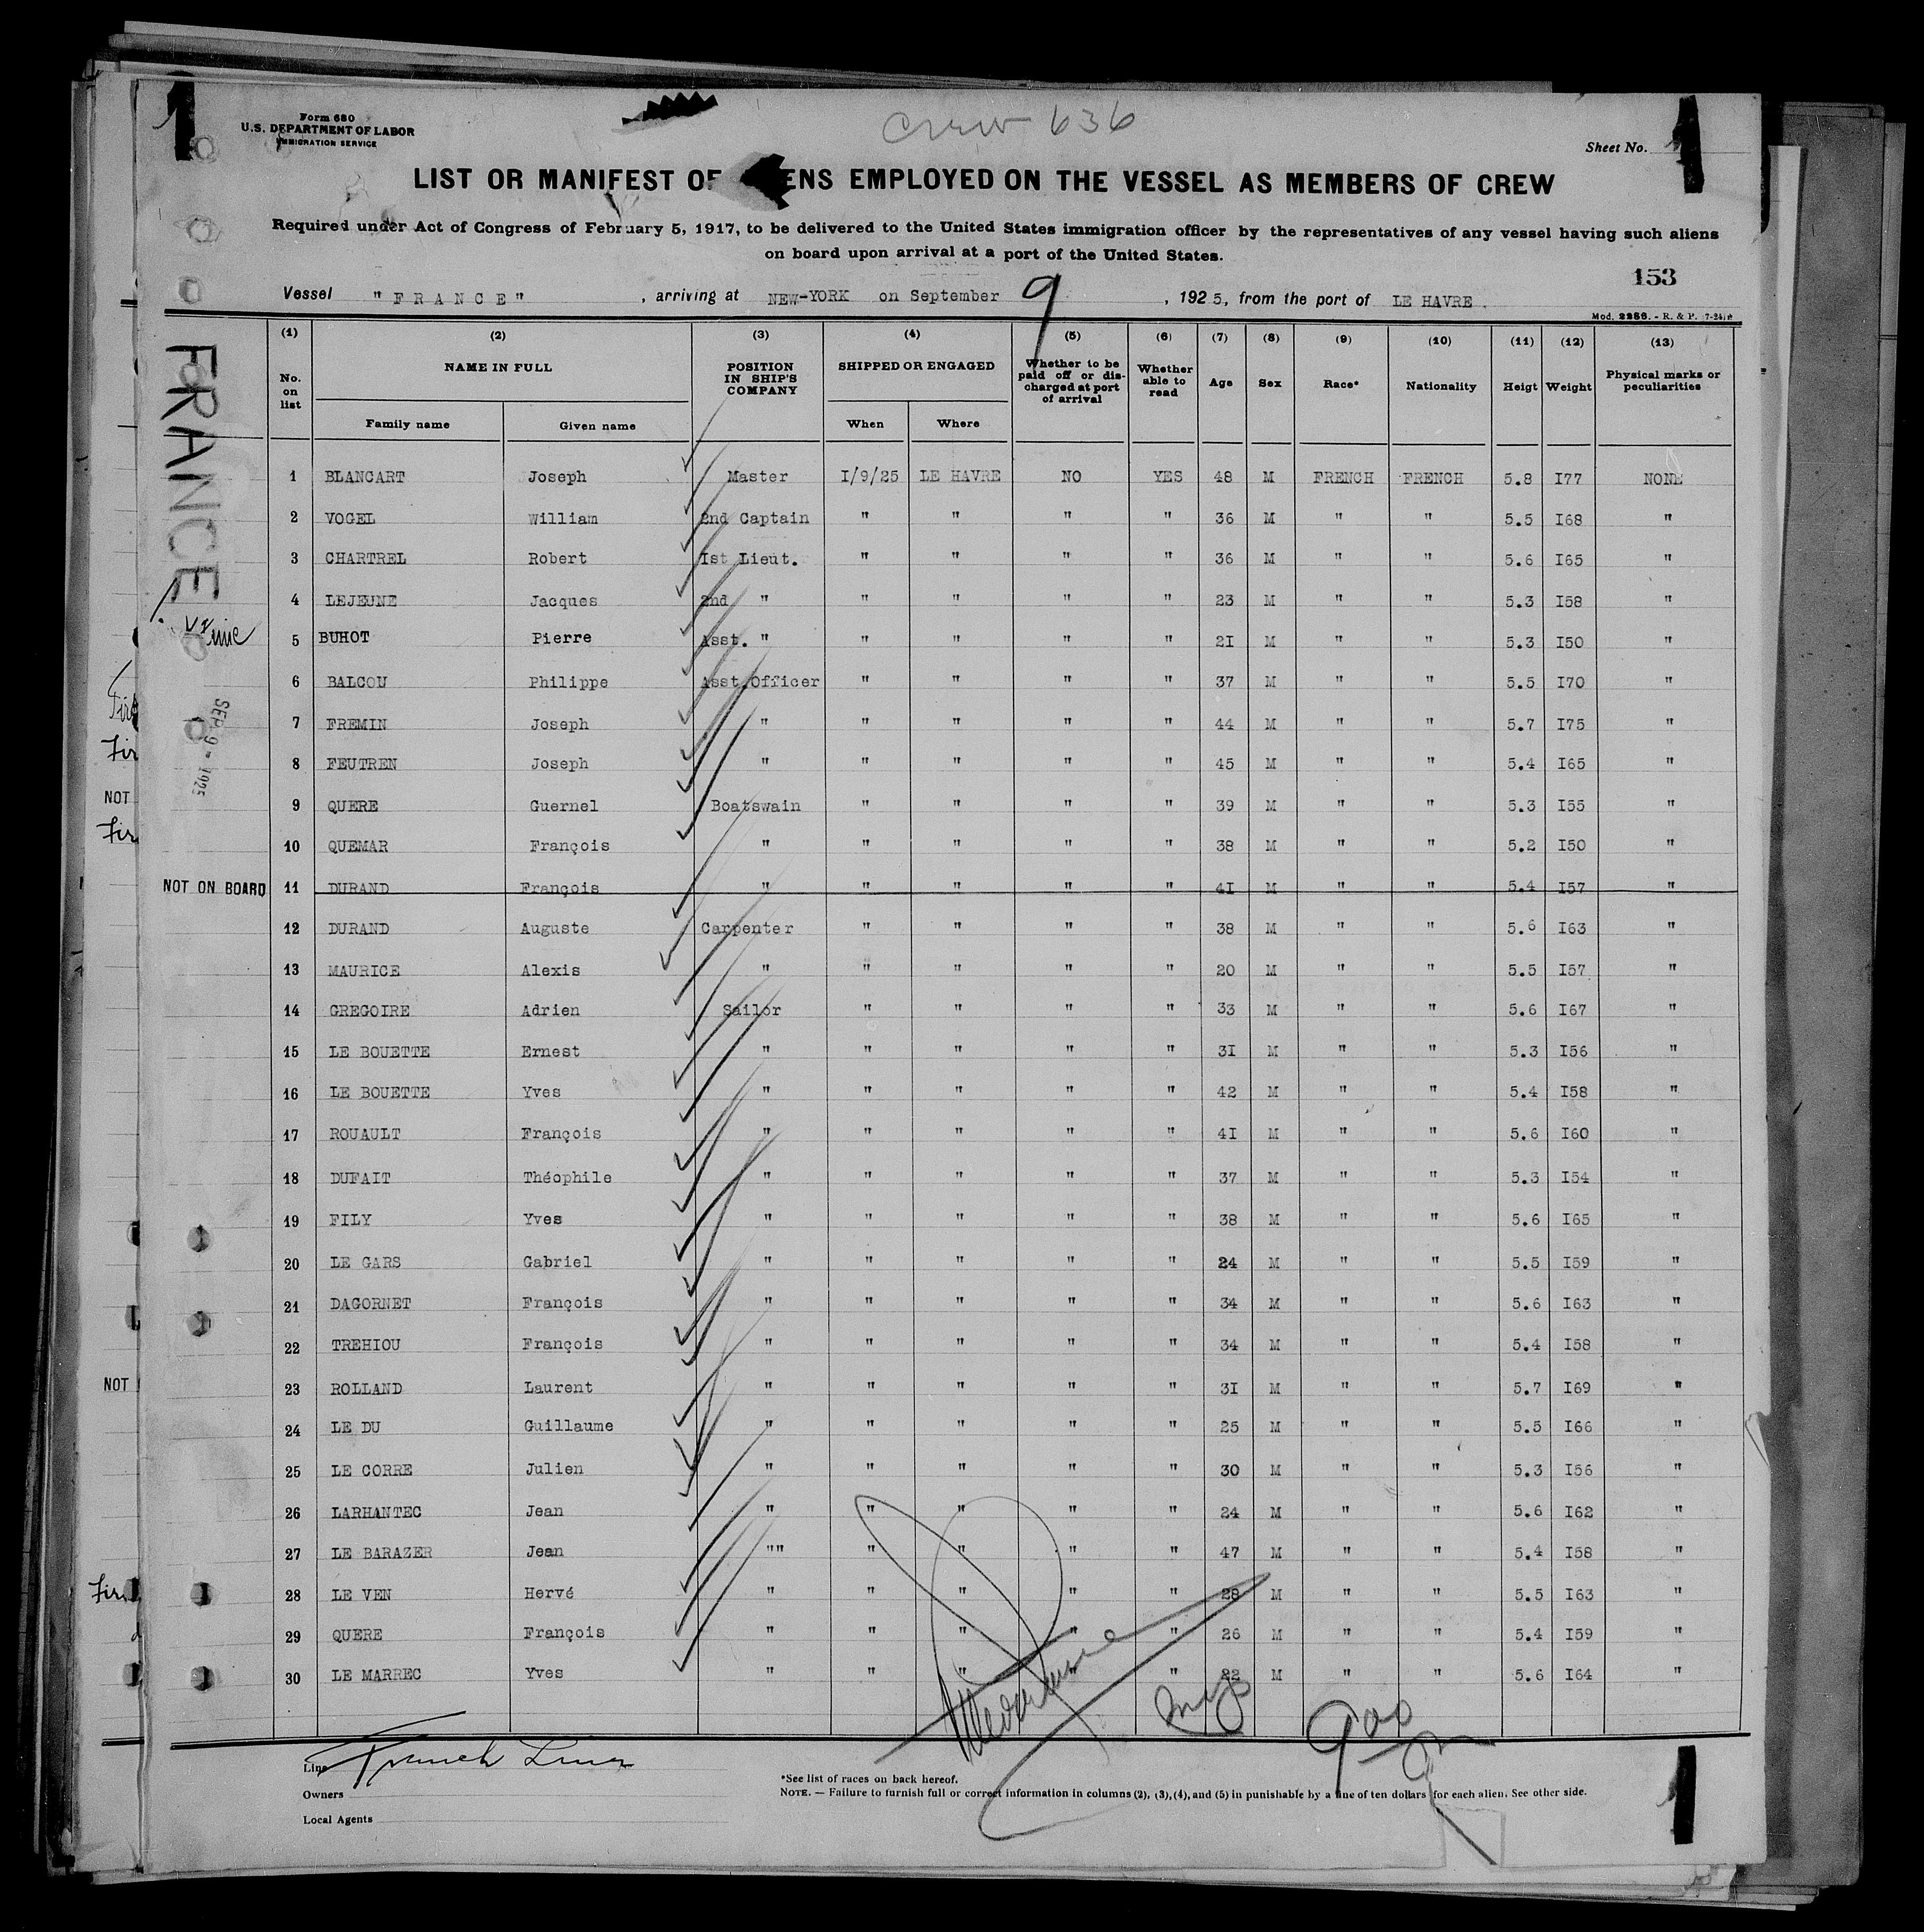 Form 680
U.S. DEPARTMENT OF LABOR
IMMIGRATION SERVICE
Crew 636
Sheet No.
LIST OR MANIFEST OF ENS EMPLOYED ON THE VESSEL AS MEMBERS OF CREW
Required under Act of Congress of February 5, 1917, to be delivered to the United States immigration officer by the representatives of any vessel having such aliens
on board upon arrival at a port of the United States.
153
Vessel "FRANCE", arriving at NEW-YORK on September 9, 1925, from the port of LE HAVRE.
Mod. 2286. - R. & P. 7-24
(1) (2) (3) (4) (5) (6) (7) (8) (9) (10) (11) (12) (13)
No. on list NAME IN FULL POSITION IN SHIP'S COMPANY SHIPPED OR ENGAGED Whether to be paid off or discharged at port of arrival Whether able to read Age Sex Race* Nationality Heigt Weight Physical marks or peculiarities
Family name Given name When Where
1 BLANCART Joseph Master I/9/25 LE HAVRE NO YES 48 M FRENCH FRENCH 5.8 I77 NONE
2 VOGEL William 2nd Captain " " " " 36 M " " 5.5 I68 "
3 CHARTREL Robert Ist Lieut. " " " " 36 M " " 5.6 I65 "
4 LEJEUNE Jacques 2nd " " " " " 23 M " " 5.3 I58 "
5 BUHOT Pierre Asst. " " " " " 2I M " " 5.3 I50 "
6 BALCOU Philippe Asst.Officer " " " " 37 M " " 5.5 I70 "
7 FREMIN Joseph " " " " " 44 M " " 5.7 I75 "
8 FEUTREN Joseph " " " " " 45 M " " 5.4 I65 "
9 QUERE Guernel Boatswain " " " " 39 M " " 5.3 I55 "
10 QUEMAR François " " " " " 38 M " " 5.2 I50 "
NOT ON BOARD 11 DURAND François " " " " " 4I M " " 5.4 I57 "
12 DURAND Auguste Carpenter " " " " 38 M " " 5.6 I63 "
13 MAURICE Alexis " " " " " 20 M " " 5.5 I57 "
14 GREGOIRE Adrien Sailor " " " " 33 M " " 5.6 I67 "
15 LE BOUETTE Ernest " " " " " 3I M " " 5.3 I56 "
16 LE BOUETTE Yves " " " " " 42 M " " 5.4 I58 "
17 ROUAULT François " " " " " 4I M " " 5.6 I60 "
18 DUFAIT Théophile " " " " " 37 M " " 5.3 I54 "
19 FILY Yves " " " " " 38 M " " 5.6 I65 "
20 LE GARS Gabriel " " " " " 24 M " " 5.5 I59 "
21 DAGORNET François " " " " " 34 M " " 5.6 I63 "
22 TREHIOU François " " " " " 34 M " " 5.4 I58 "
23 ROLLAND Laurent " " " " " 3I M " " 5.7 I69 "
24 LE DU Guillaume " " " " " 25 M " " 5.5 I66 "
25 LE CORRE Julien " " " " " 30 M " " 5.3 I56 "
26 LARHANTEC Jean " " " " " 24 M " " 5.6 I62 "
27 LE BARAZER Jean "" " " " " 47 M " " 5.4 I58 "
28 LE VEN Hervé " " " " " 28 M " " 5.5 I63 "
29 QUERE François " " " " " 26 M " " 5.4 I59 "
30 LE MARREC Yves " " " " " 22 M " " 5.6 I64 "
FRANCE
SEP 9 - 1925
NOT
NOT
Line French Line
Owners
Local Agents
*See list of races on back hereof.
NOTE. — Failure to furnish full or correct information in columns (2), (3), (4), and (5) in punishable by a fine of ten dollars for each alien. See other side.